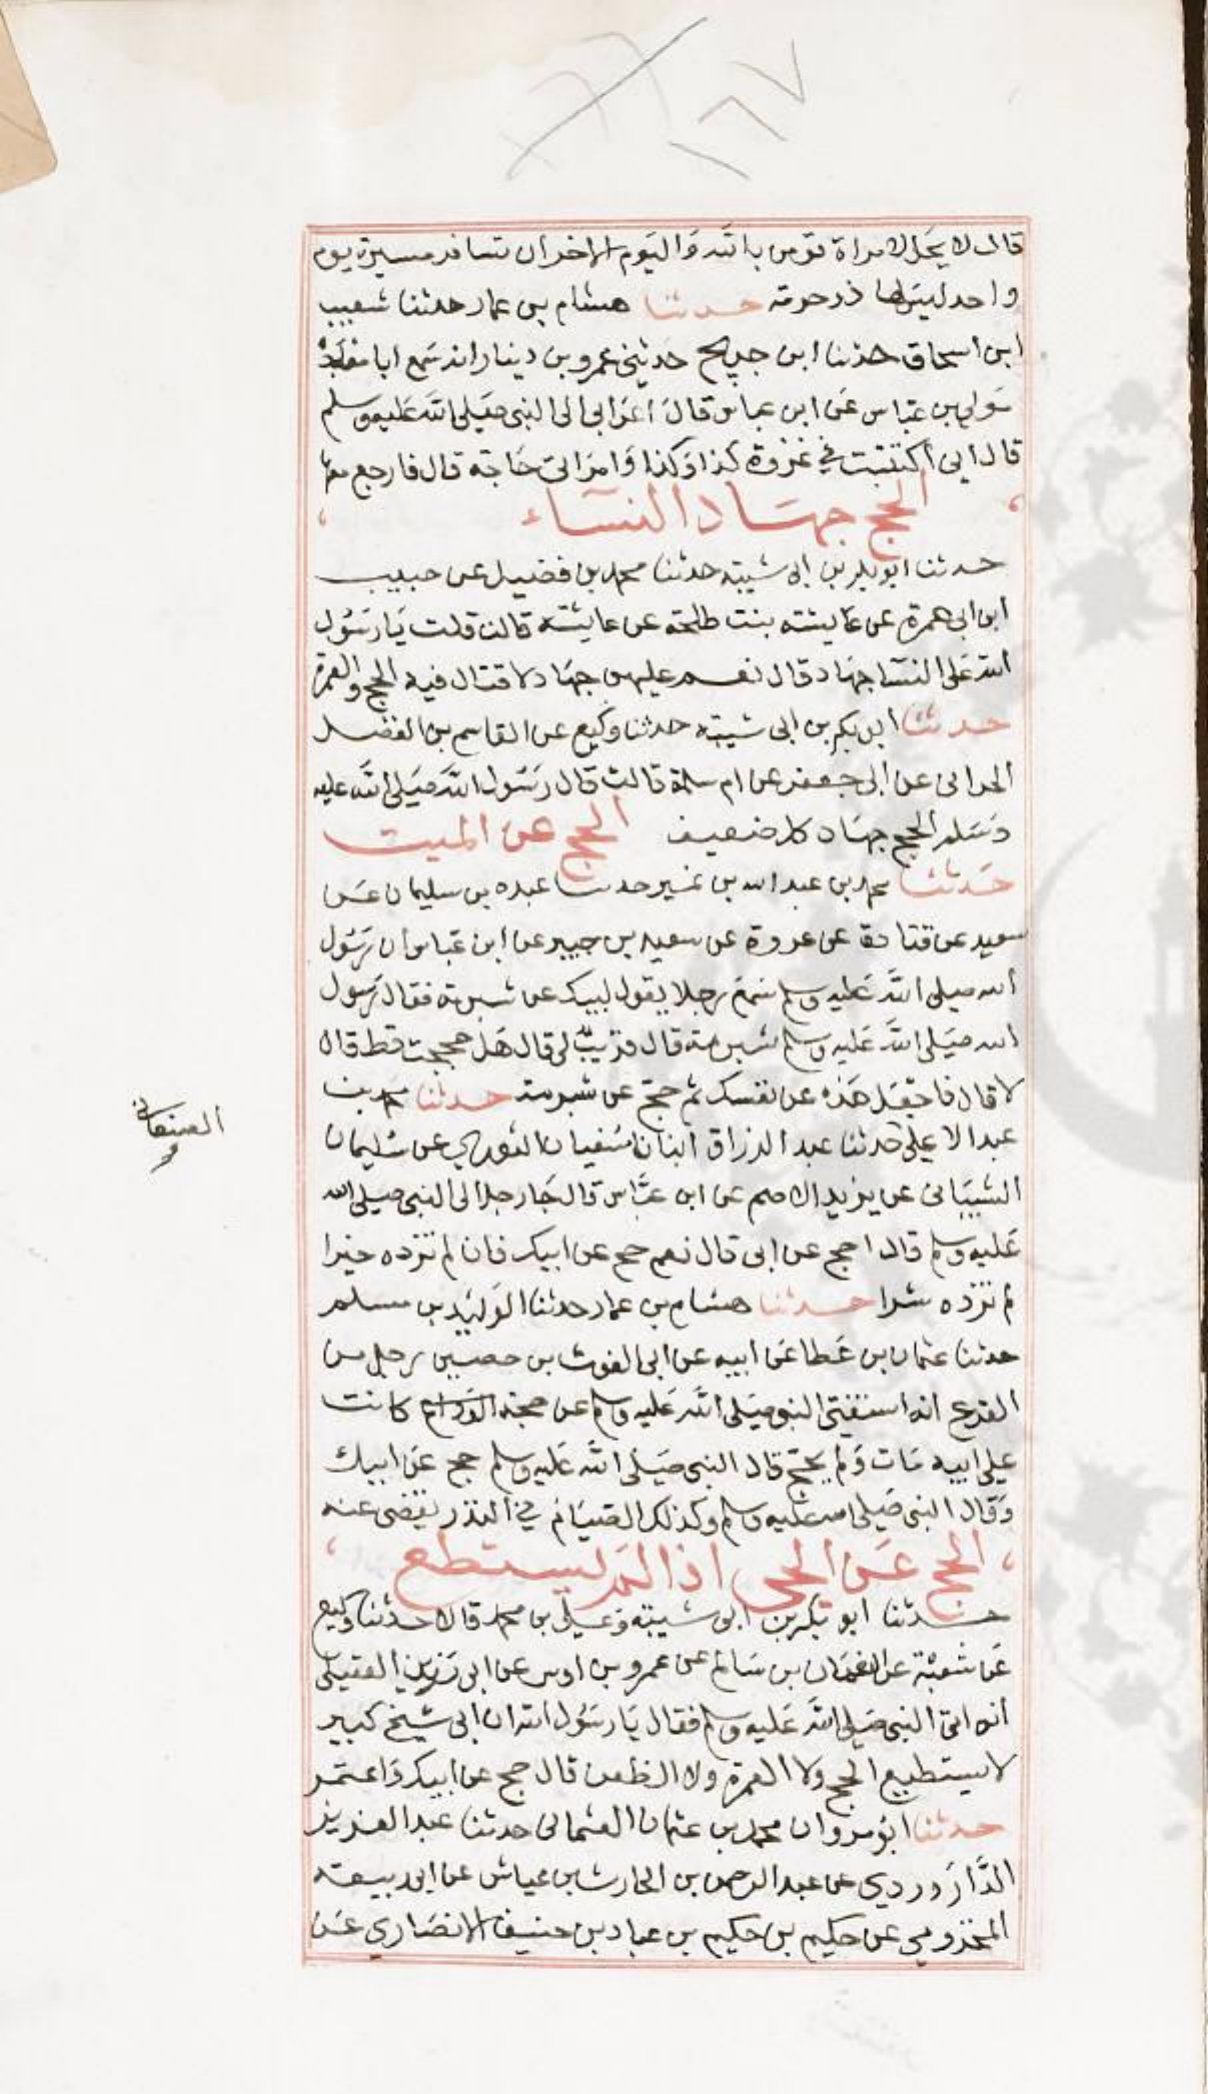 ١٦٧
قال لا يحل لامراة تومن بالله واليوم الاخر ان تسافر مسيرة يوم
واحد ليس لها ذو حرمة حدثنا هشام بن عمار حدثنا شعيب
ابن اسحاق حدثنا ابن جريج حدثني عمرو بن دينار انه سمع ابا معبد
مولى بن عباس عن ابن عباس قال اعرابي الى النبي صلى الله عليه وسلم
قال اني اكتتبت في غزوة كذا وكذا وامراتي حاجة قال فارجع معها
الحج جهاد النساء
حدثنا ابو بكر بن ابي شيبة حدثنا محمد بن فضيل عن حبيب
ابن ابي عمرة عن عايشة بنت طلحة عن عايشة قالت قلت يا رسول
الله على النسا جهاد قال نعم عليهن جهاد لا قتال فيه الحج والعمرة
حدثنا ابو بكر بن ابي شيبة حدثنا وكيع عن القاسم بن الفضل
الحداني عن ابي جعفر عن ام سلمة قالت قال رسول الله صلى الله عليه
وسلم الحج جهاد كل ضعيف الحج عن الميت
حدثنا محمد بن عبد الله بن نمير حدثنا عبده بن سليمان عن
سعيد عن قتادة عن عروة عن سعيد بن جبير عن ابن عباس ان رسول
الله صلى الله عليه وسلم سمع رجلا يقول لبيك عن شبرمة فقال رسول
الله صلى الله عليه وسلم شبرمة قال قريب لي قال هل حججت قط قال
لا قال فاجعل هذه عن نفسك ثم حج عن شبرمة حدثنا محمد بن
عبد الاعلى حدثنا عبد الرزاق انبانا سفيان الثوري عن سليمان
الصنعاني
الشيباني عن يزيد الاصم عن ابن عباس قال جا رجل الى النبي صلى الله
عليه وسلم قال احج عن ابي قال نعم حج عن ابيك فان لم تزده خيرا
لم تزده شرا حدثنا هشام بن عمار حدثنا الوليد بن مسلم
حدثنا عثمان بن عطا عن ابيه عن ابي الغوث بن حصين رجل من
الفرع انه استفتى النبي صلى الله عليه وسلم عن حجة الوداع كانت
على ابيه مات ولم يحج قال النبي صلى الله عليه وسلم حج عن ابيك
وقال النبي صلى الله عليه وسلم وكذلك الصيام في النذر يقضى عنه
الحج عن الحي اذا لم يستطع
حدثنا ابو بكر بن ابي شيبة وعلي بن محمد قالا حدثنا وكيع
عن شعبة عن النعمان بن سالم عن عمرو بن اوس عن ابي رزين العقيلي
انه اتى النبي صلى الله عليه وسلم فقال يا رسول الله ان ابي شيخ كبير
لا يستطيع الحج ولا العمرة ولا الظعن قال حج عن ابيك واعتمر
حدثنا ابو مروان محمد بن عثمان العثماني حدثنا عبد العزيز
الداروردي عن عبد الرحمن بن الحارث بن عياش عن ابي ربيعة
المخزومي عن حكيم بن حكيم بن عباد بن حنيف الانصاري عن